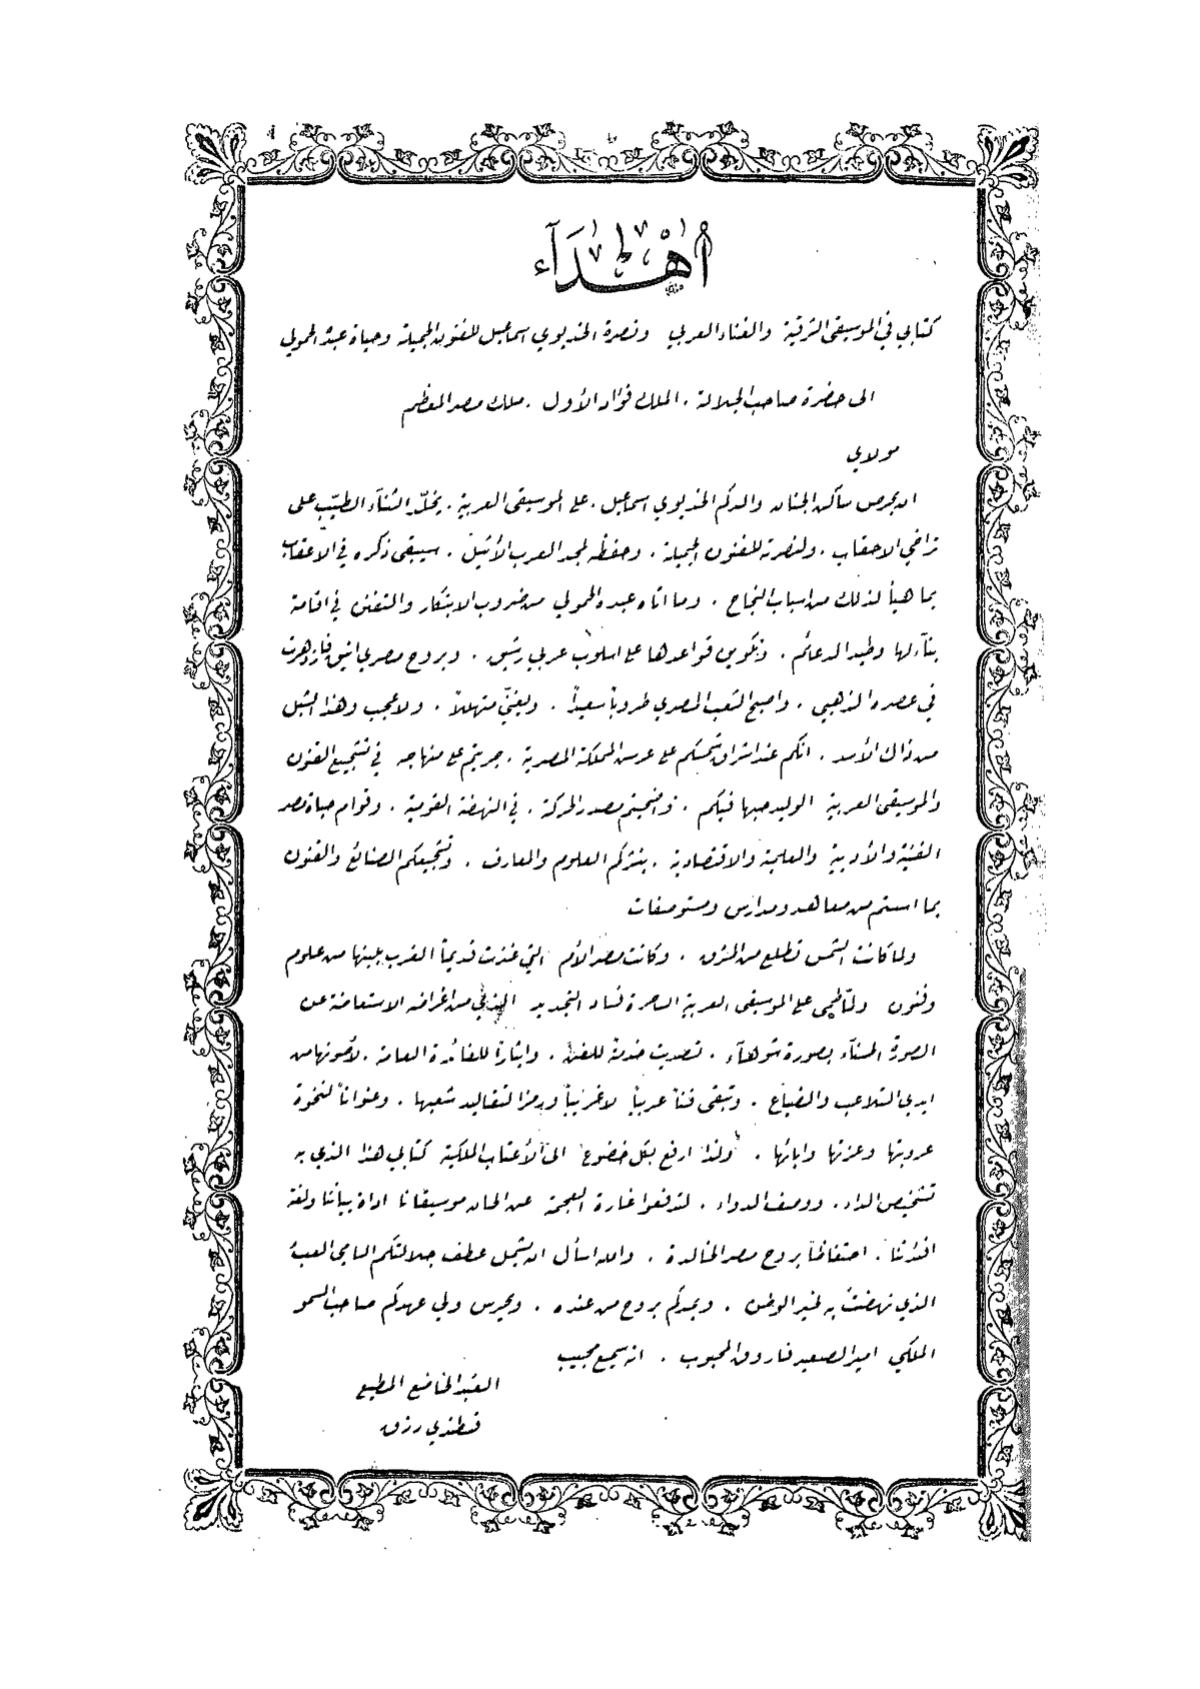 إهداء
كتابي في الموسيقى الشرقية والغناء العربي ونصرة الخديوي اسماعيل للفنون الجميلة وحياة عبده الحمولي
الى حضرة صاحب الجلالة . الملك فؤاد الأول . ملك مصر المعظم
مولاي
ان حرص ساكن الجنان والدكم الخديوي اسماعيل . على الموسيقى العربية . يخلد الثناء الطيب على
تراخي الاحقاب . ولنصرته للفنون الجميلة . وحفظه لمجد العرب الأثيل . سيبقى ذكره في الاعقاب
بما هيأ لذلك من اسباب النجاح . وما اتاه عبده الحمولي من ضروب الابتكار والتفنن في اقامة
بناء لها وطيد الدعائم . وتكوين قواعدها على اسلوب عربي رشيق . وبروح مصري انيق فازدهرت
في عصره الذهبي . واصبح الشعب المصري طروباً سعيداً . ويغني متهللاً . ولا عجب وهذا الشبل
من ذاك الأسد . انكم عند اشراق شمسكم على عرس المملكة المصرية . جريتم على منهاجه في تشجيع الفنون
والموسيقى العربية الوليد حبها فيكم . واضحيتم مصدر الحركة . في النهضة القومية . وقوام حياة مصر
الفنية والأدبية والعلمية والاقتصادية . بنشركم العلوم والمعارف . وتشجيعكم الصنائع والفنون
بما اسستم من معاهد ومدارس ومستوصفات
ولما كانت الشمس تطلع من الشرق . وكانت مصر الأم التي غذت قديماً الغرب بلبنها من علوم
وفنون ولما طمى على الموسيقى العربية الساحرة فساد التجديد الذي من اغراضه الاستعاضة عن
الصورة الحسناء بصورة شوهاء . تصديت خدمة للفن . وايثاراً للفائدة العامة . لأصونها من
ايدي التلاعب والضياع . وتبقى فناً عربياً لا غربياً ورمزا لتقاليد شعبها . وعنواناً لنخوة
عروبتها وعزتها وابائها . ولذا ارفع بكل خضوع الى الأعتاب الملكية كتابي هذا الذي به
تشخيص الداء . ووصف الدواء . لتدفعوا غارة العجمة عن الحان موسيقانا اداة بياننا ولغة
افئدتنا . احتفاظاً بروح مصر الخالدة . والله اسأل ان يشمل عطف جلالتكم السامي العبء
الذي نهضت به لخير الوطن . ويمدكم بروح من عنده . ويحرس ولي عهدكم صاحب السمو
الملكي امير الصعيد فاروق المحبوب . انه سميع مجيب
العبد الخاضع المطيع
قسطندي رزق